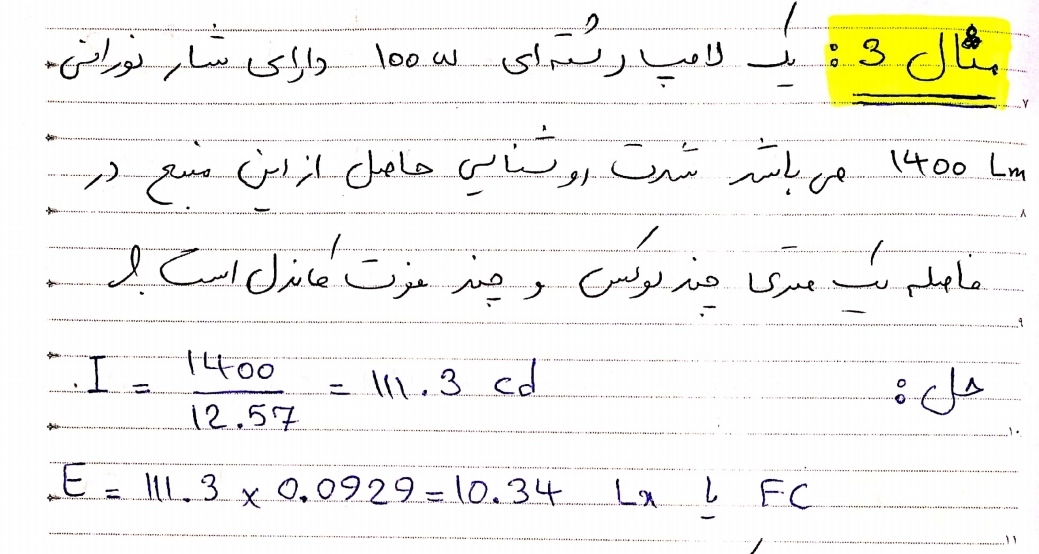 مثال 3 : یک لامپ رشته ای 100 w دارای شار نورانی
1400 Lm می باشد شدت روشنایی حاصل از این منبع در
فاصله یک متری چند لوکس و چند فوت کاندل است ؟
حل :
I = 1400 / 12.57 = 111.3 cd
E = 111.3 x 0.0929 = 10.34 Lx یا FC